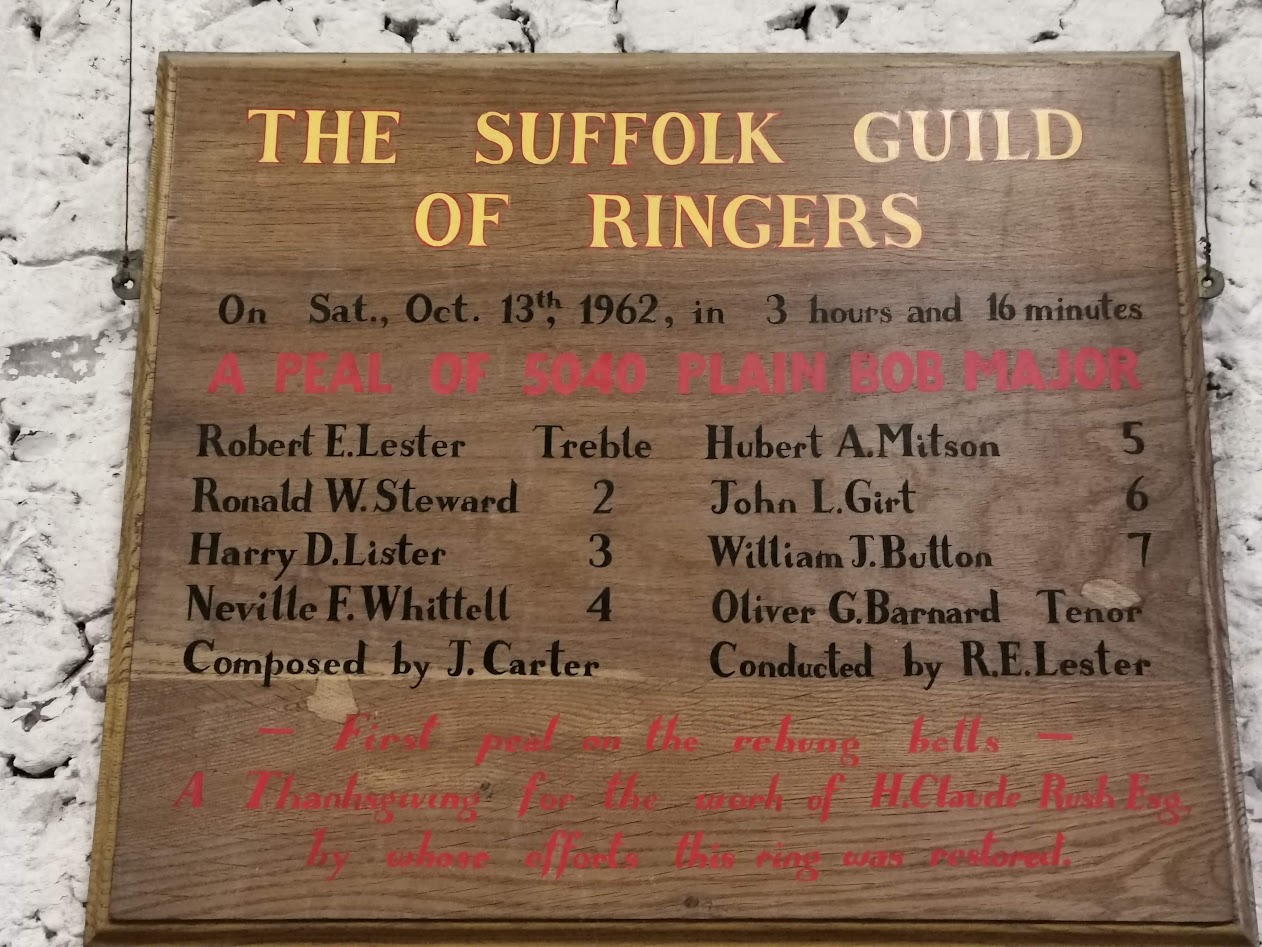 THE SUFFOLK GUILD
OF RINGERS
On Sat., Oct. 13th, 1962, in 3 hours and 16 minutes
A PEAL OF 5040 PLAIN BOB MAJOR
Robert E. Lester Treble Hubert A. Mitson 5
Ronald W. Steward 2 John L. Girt 6
Harry D. Lister 3 William J. Button 7
Neville F. Whittell 4 Oliver G. Barnard Tenor
Composed by J. Carter Conducted by R.E. Lester
— First peal on the rehung bells —
A Thanksgiving for the work of H. Claude Rush Esq,
by whose efforts this ring was restored.